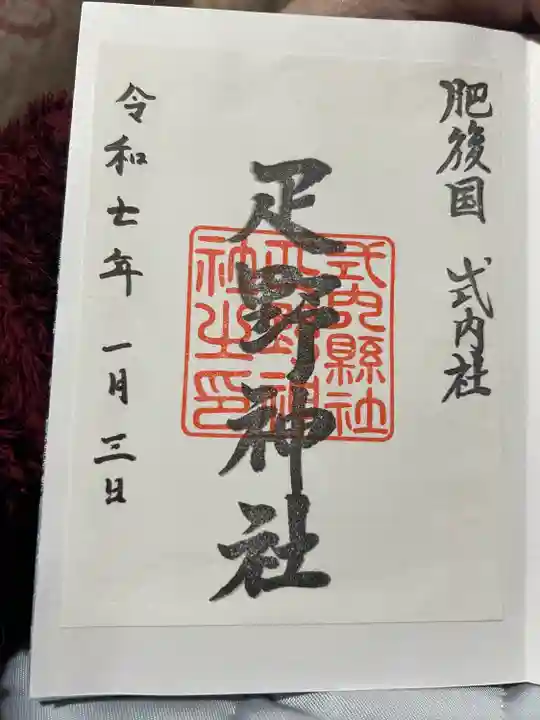 肥後国 式内社
疋野神社
式内縣社
疋野神
社之印
令和七年一月三日